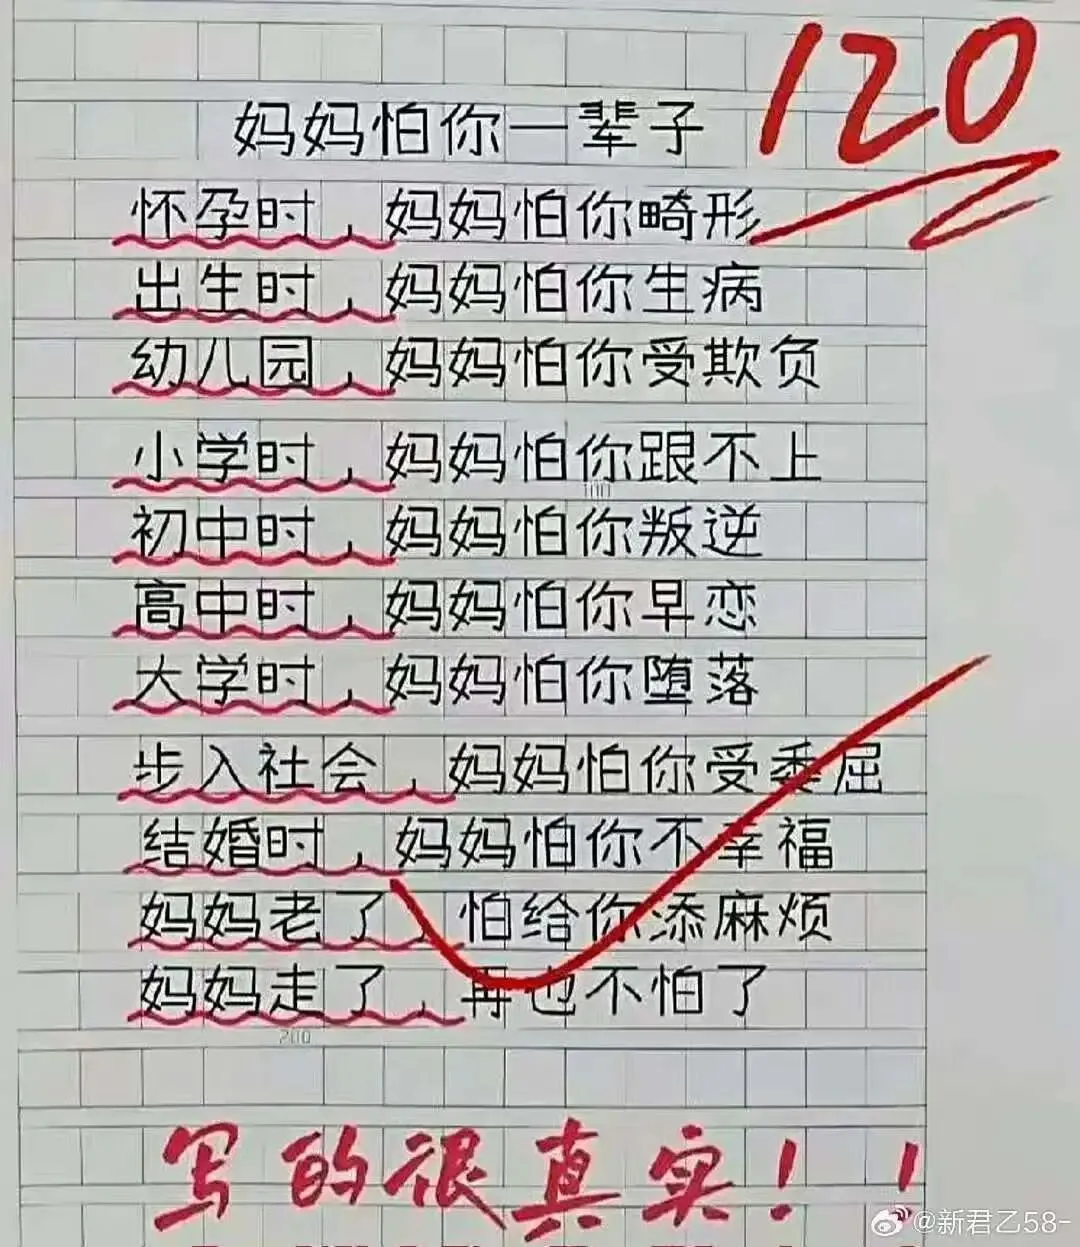 120
妈妈怕你一辈子
怀孕时，妈妈怕你畸形
出生时，妈妈怕你生病
幼儿园，妈妈怕你受欺负
小学时，妈妈怕你跟不上
100
初中时，妈妈怕你叛逆
高中时，妈妈怕你早恋
大学时，妈妈怕你堕落
步入社会，妈妈怕你受委屈
结婚时，妈妈怕你不幸福
妈妈老了，怕给你添麻烦
妈妈走了，再也不怕了
200
写的很真实！！
@新君乙58-